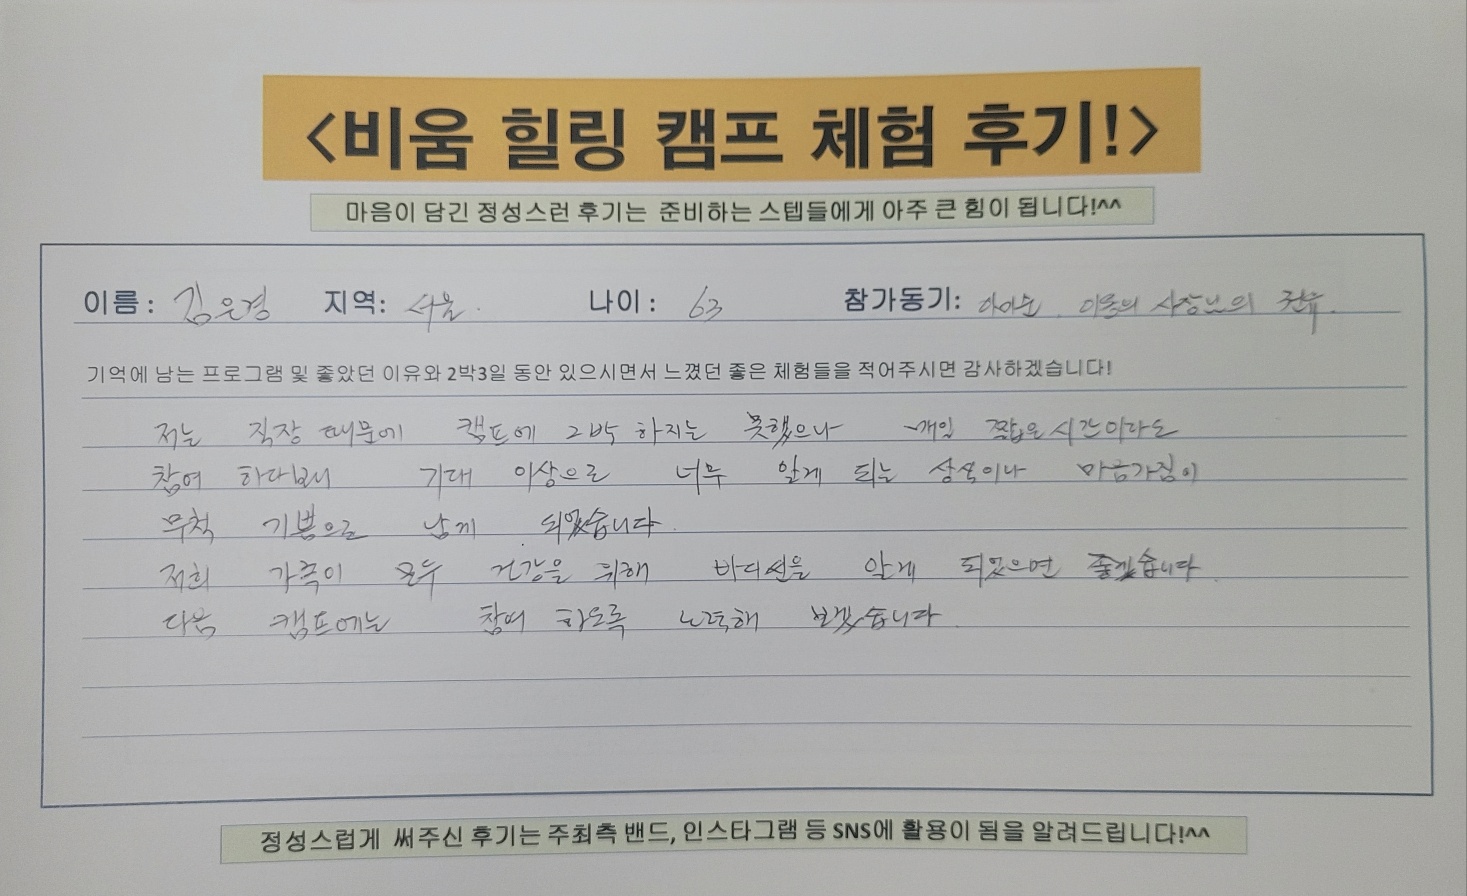 <비움 힐링 캠프 체험 후기!>
마음이 담긴 정성스런 후기는 준비하는 스텝들에게 아주 큰 힘이 됩니다!^^
이름 : 김은경 지역: 서울. 나이 : 63 참가동기: 사장님의 권유.
기억에 남는 프로그램 및 좋았던 이유와 2박3일 동안 있으시면서 느꼈던 좋은 체험들을 적어주시면 감사하겠습니다!
저는 직장 때문에 캠프에 2박 하지는 못했으나 짧은시간이라도
참여 하다보니 기대 이상으로 너무 알게 되는 마음가짐이
무척 기쁨으로 남게 되었습니다.
저희 가족이 모두 건강을 위해 알게 되었으면 좋겠습니다.
다음 캠프에는 참여 하도록 노력해 보겠습니다.
정성스럽게 써주신 후기는 주최측 밴드, 인스타그램 등 SNS에 활용이 됨을 알려드립니다!^^